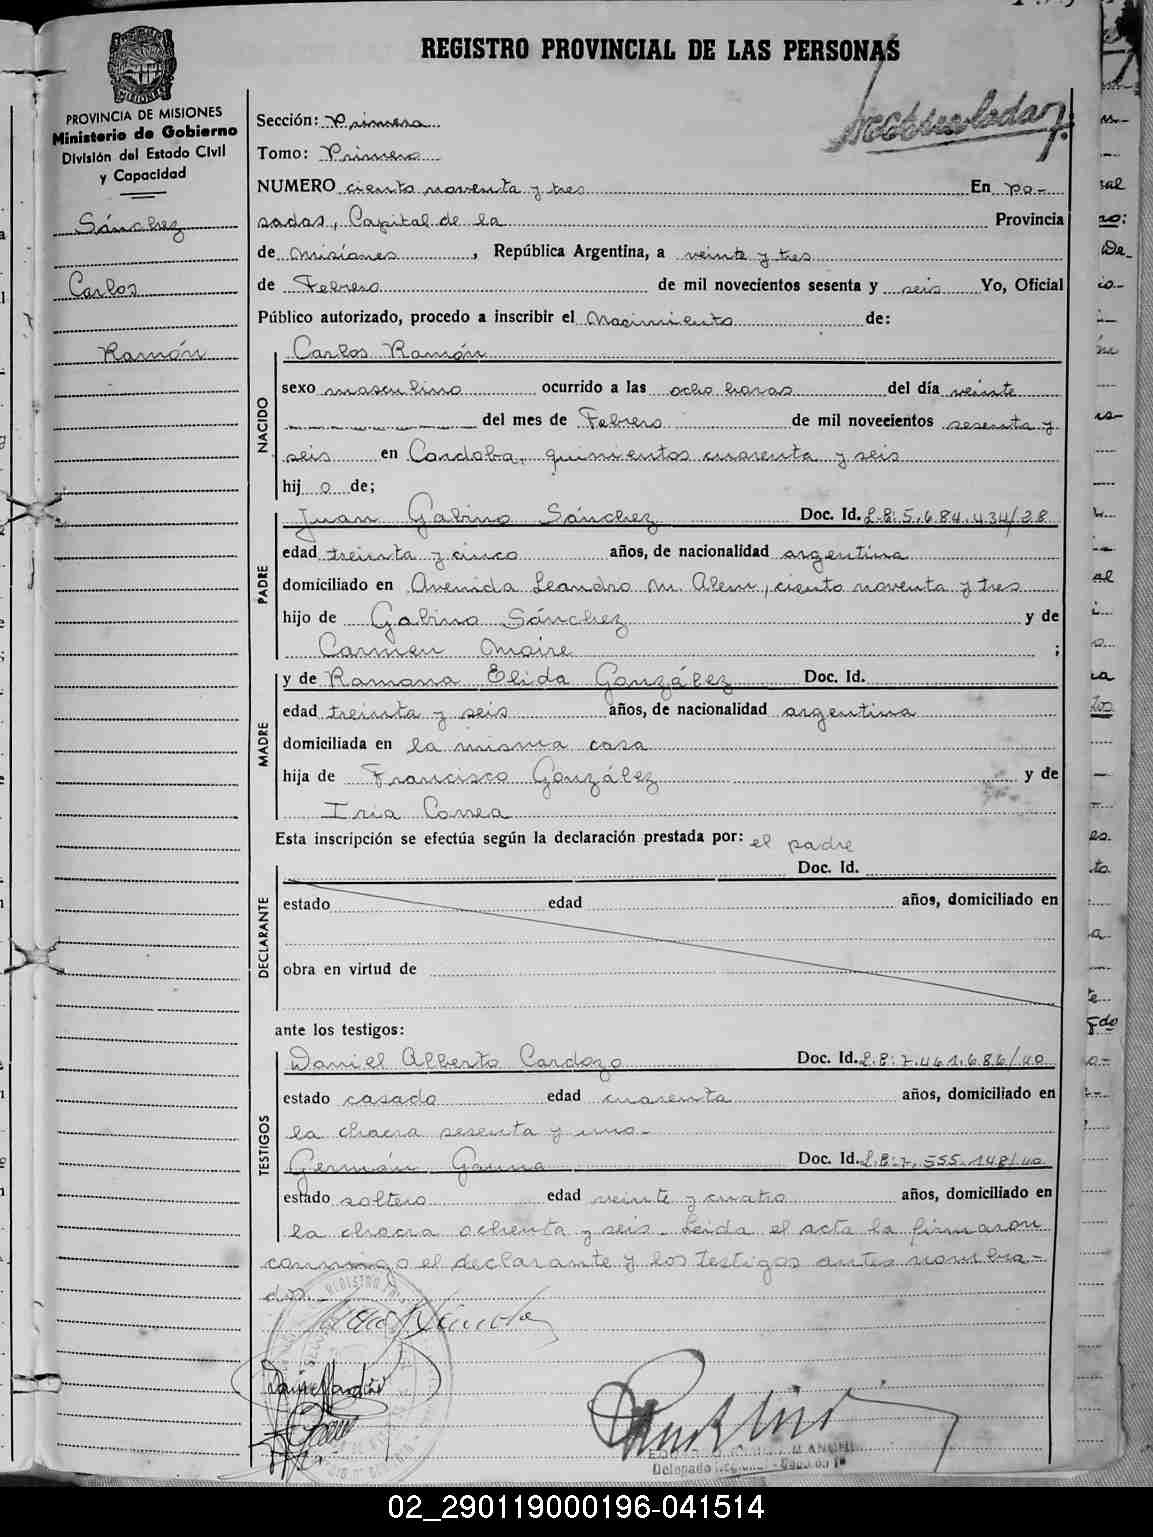 REGISTRO PROVINCIAL DE LAS PERSONAS
PROVINCIA DE MISIONES
Ministerio de Gobierno
División del Estado Civil
y Capacidad
Sánchez
Carlos
Ramón
Sección: Primera
Tomo: Primero
NUMERO ciento noventa y tres En Po-
sadas, Capital de la Provincia
de Misiones, República Argentina, a veinte y tres
de Febrero de mil novecientos sesenta y seis Yo, Oficial
Público autorizado, procedo a inscribir el Nacimiento de:
NACIDO
Carlos Ramón
sexo masculino ocurrido a las ocho horas del día veinte
del mes de Febrero de mil novecientos sesenta y
seis en Cordoba, quinientos cuarenta y seis
hij o de;
PADRE
Juan Gabino Sánchez Doc. Id. L.E: 5.684.434/28
edad treinta y cinco años, de nacionalidad argentina
domiciliado en Avenida Leandro N. Alem, ciento noventa y tres
hijo de Gabino Sánchez y de
Carmen Moire ;
MADRE
y de Ramona Elida González Doc. Id.
edad treinta y seis años, de nacionalidad argentina
domiciliada en la misma casa
hija de Francisco González y de
Iria Correa
Esta inscripción se efectúa según la declaración prestada por: el padre
DECLARANTE
Doc. Id.
estado edad años, domiciliado en
obra en virtud de
ante los testigos:
TESTIGOS
Daniel Alberto Cardozo Doc. Id. L.E: 7.461.686/40
estado casado edad cuarenta años, domiciliado en
la chacra sesenta y uno-
Germán Gauna Doc. Id. L.E: 7.555.148/40
estado soltero edad veinte y cuatro años, domiciliado en
la chacra ochenta y seis. Leida el acta la firmaron
conmigo el declarante y los testigos antes nombra-
dos.-
02_290119000196-041514